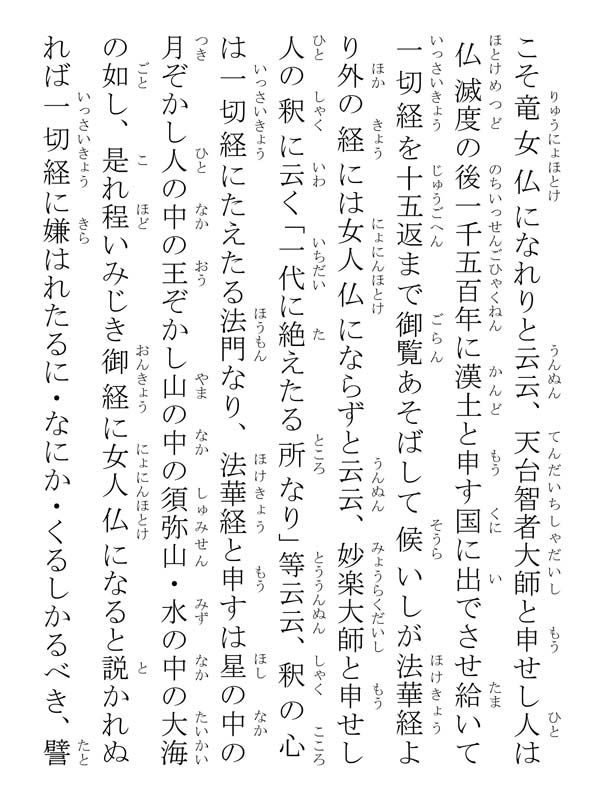 こそ竜女仏になれりと云云、天台智者大師と申せし人は
仏滅度の後一千五百年に漢土と申す国に出でさせ給いて
一切経を十五返まで御覧あそばして候いしが法華経よ
り外の経には女人仏にならずと云云、妙楽大師と申せし
人の釈に云く「一代に絶えたる所なり」等云云、釈の心
は一切経にたえたる法門なり、法華経と申すは星の中の
月ぞかし人の中の王ぞかし山の中の須弥山・水の中の大海
の如し、是れ程いみじき御経に女人仏になると説かれぬ
れば一切経に嫌はれたるに・なにか・くるしかるべき、譬